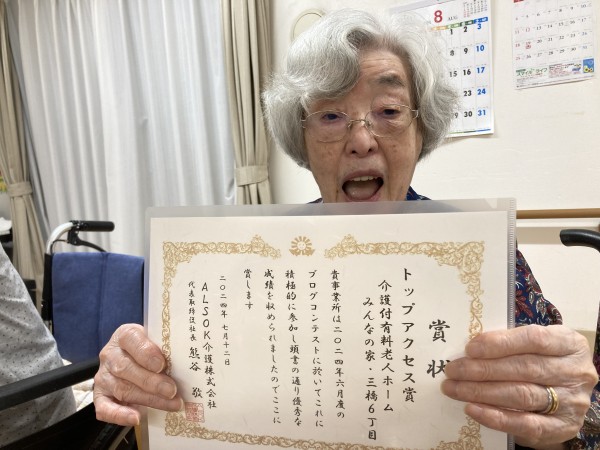 賞状
トップアクセス賞
介護付有料老人ホーム
みんなの家・三橋6丁目
貴事業所は二〇二四年六月度の
ブログコンテストに於いてこれに
積極的に参加し頭書の通り優秀な
成績を収められましたのでここに
賞します
二〇二四年 七月十二日
ALSOK介護株式会社
代表取締役社長 熊谷 敬
8 AUG
1 2 3
9 10
16 17
23 24
30 31